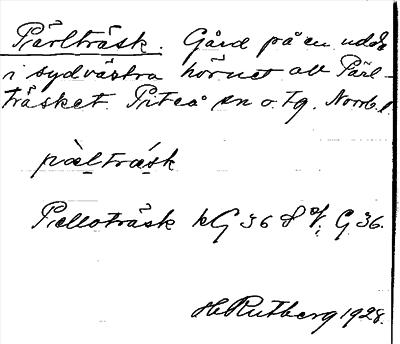 Pärlträsk. Gård på en udde
i sydvästra hörnet av Pärl-
träsket. Piteå sn o. tg. Norrb. l.
pàltrǽsk
Pelloträsk kG 36 G 36.
H Rutberg 1928.